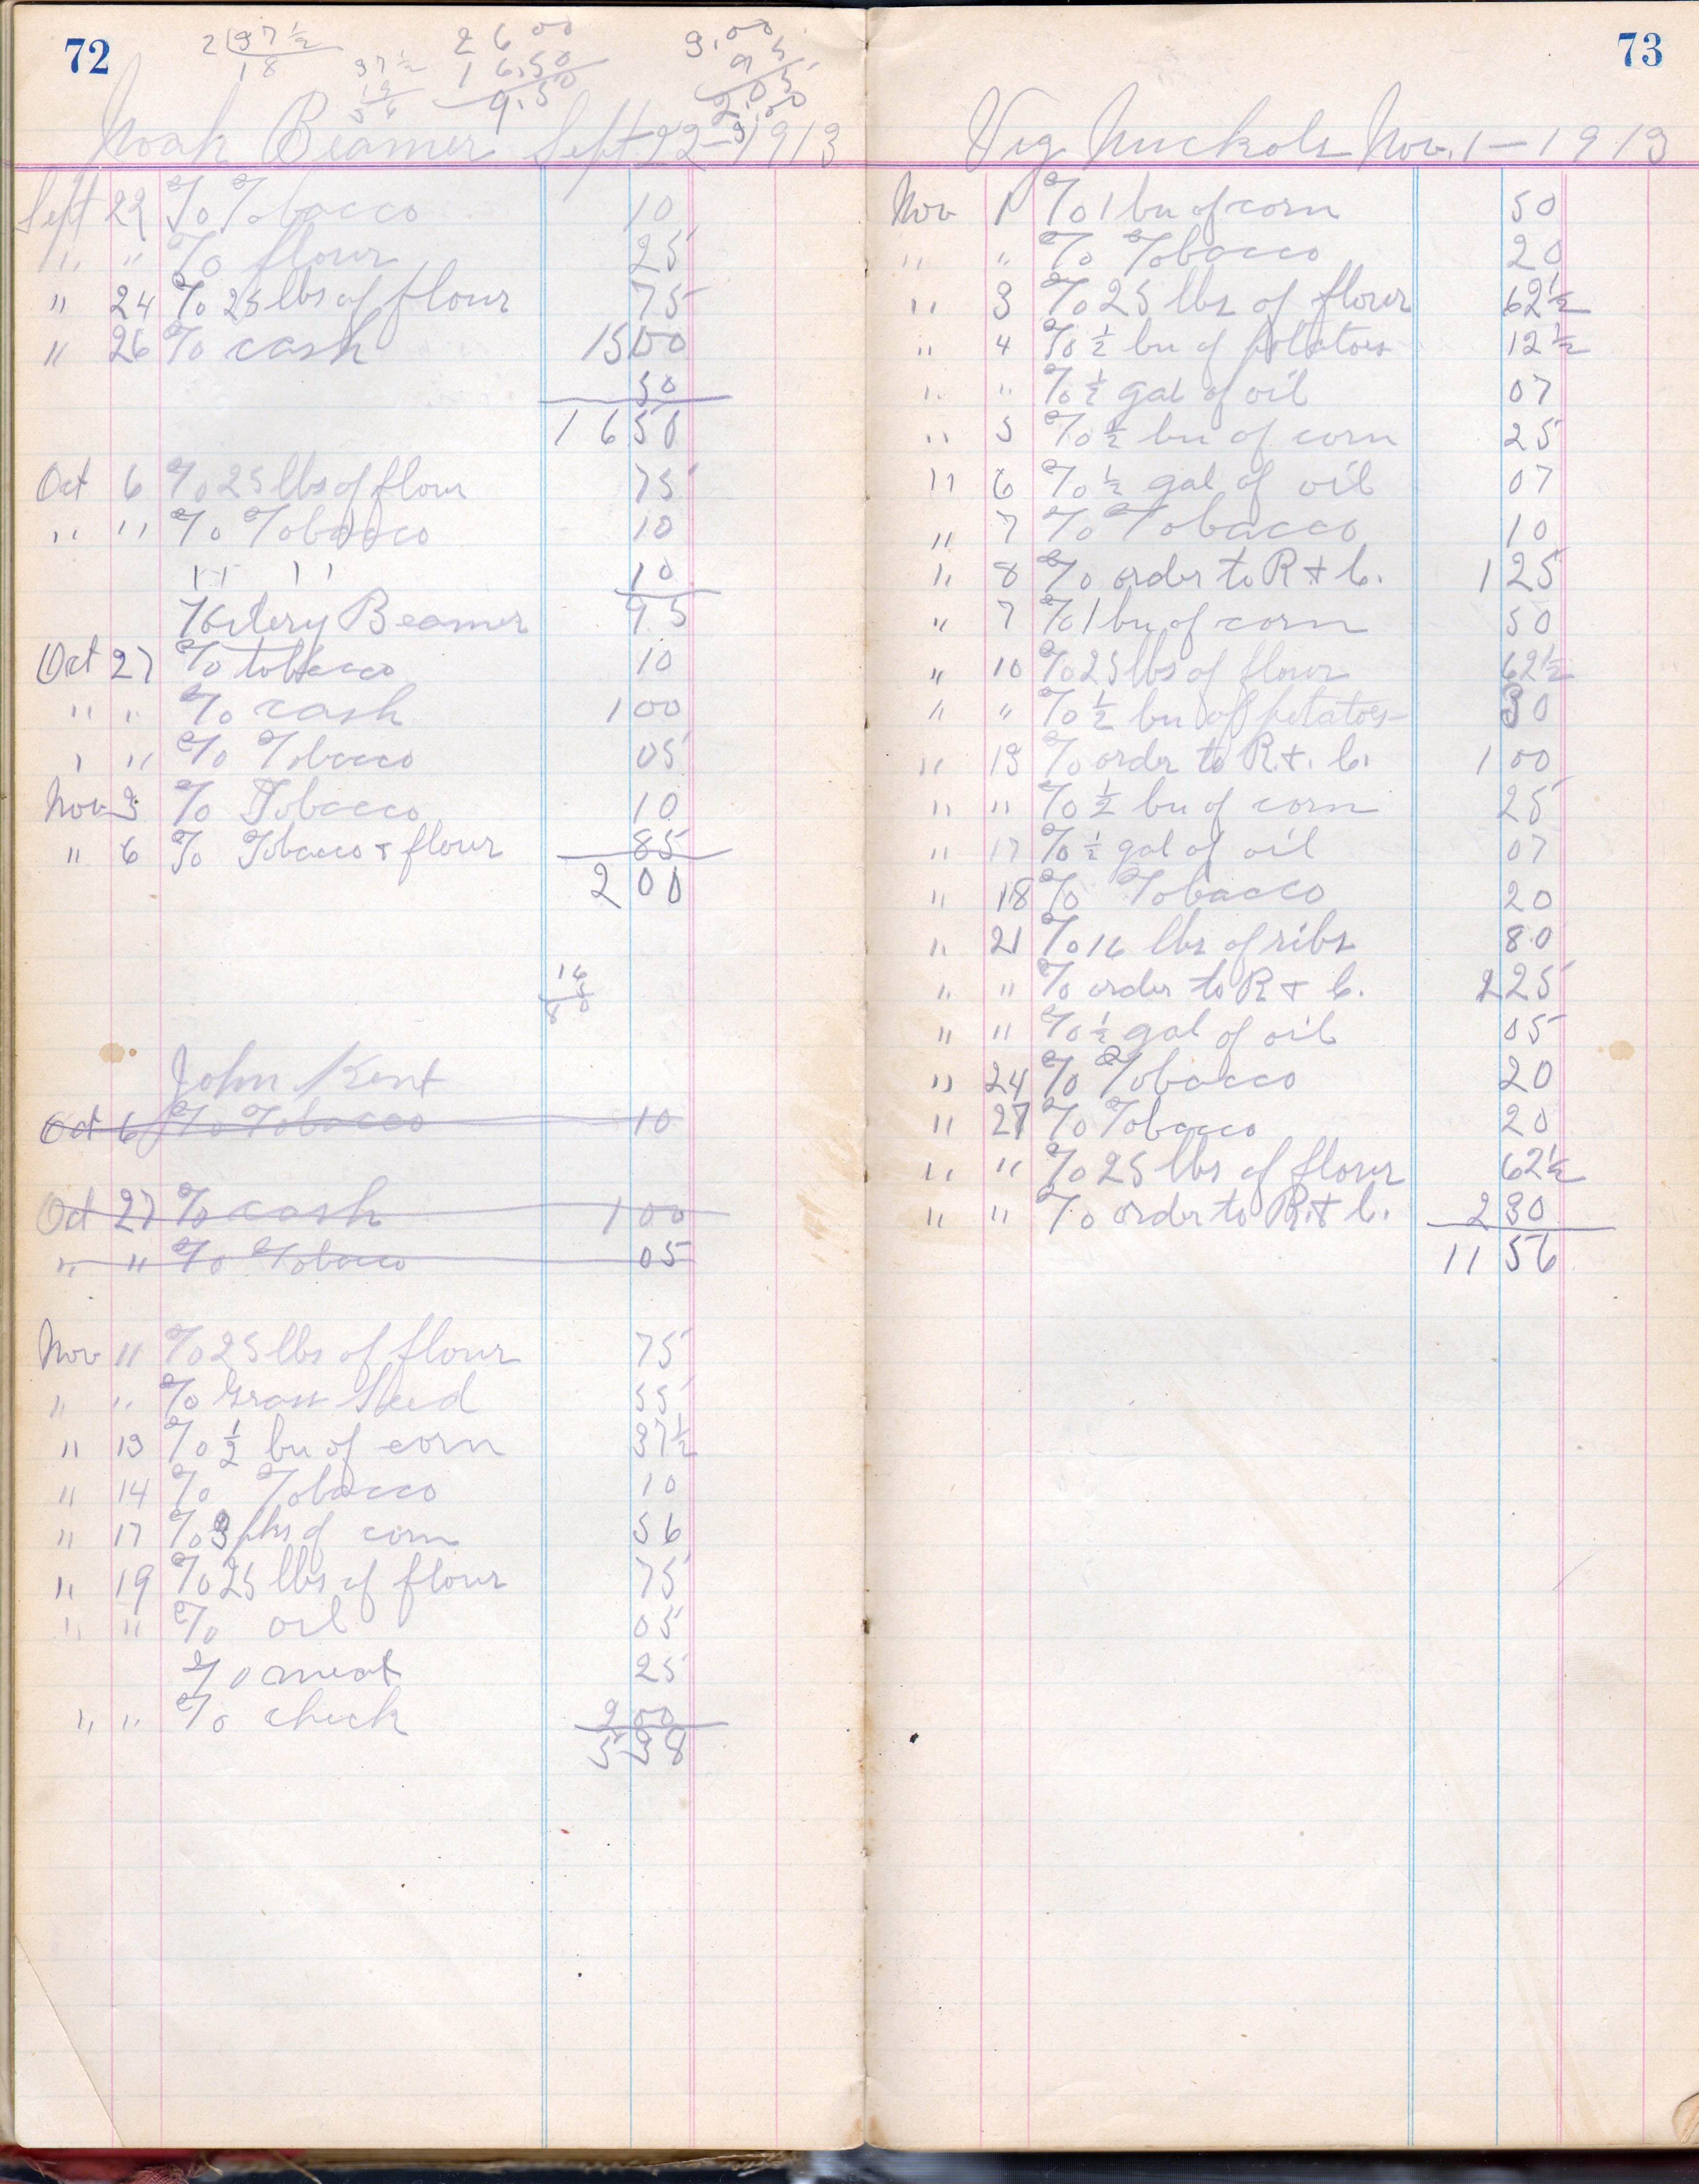 72
2)37½
18
37½
19
56
26 00
16.50
9.50
9.00
95
205
Noah Beamer Sept 22–1913
Sept 22 % Tobacco 10
" " % flour 25
" 24 % 25 lbs of flour 75
" 26 % cash 15 00
50
16 50
Oct 6 % 25 lbs of flour 75
" " % Tobacco 10
" " 10
95
Beamer
Oct 27 % tobacco 10
" " % cash 1 00
" " % Tobacco 05
Nov 3 % Tobacco 10
" 6 % Tobacco & flour 85
2 00
16
5
80
John Kent
Oct 6 % Tobacco 10
Oct 27 % cash 1 00
" " % Tobacco 05
Nov 11 % 25 lbs of flour 75
" " % Grass Seed 55
" 13 % ½ bu of corn 37½
" 14 % Tobacco 10
" 17 % 3 pks of corn 56
" 19 % 25 lbs of flour 75
" " % oil 05
% meat 25
" " % check 2 00
5 38
73
Vig Nuckols Nov. 1–1913
Nov 1 % 1 bu of corn 50
" " % Tobacco 20
" 3 % 25 lbs of flour 62½
" 4 % ½ bu of potatoes 12½
" " % ½ gal of oil 07
" 5 % ½ bu of corn 25
" 6 % ½ gal of oil 07
" 7 % Tobacco 10
" 8 % order to R & C. 1 25
" 7 % 1 bu of corn 50
" 10 % 25 lbs of flour 62½
" " % ½ bu of potatoes 30
" 13 % order to R. & C. 1 00
" " % ½ bu of corn 25
" 17 % ½ gal of oil 07
" 18 % Tobacco 20
" 21 % 16 lbs of ribs 80
" " % order to R & C. 2 25
" " % ½ gal of oil 05
" 24 % Tobacco 20
" 27 % Tobacco 20
" " % 25 lbs of flour 62½
" " % order to R. & C. 2 30
11 56